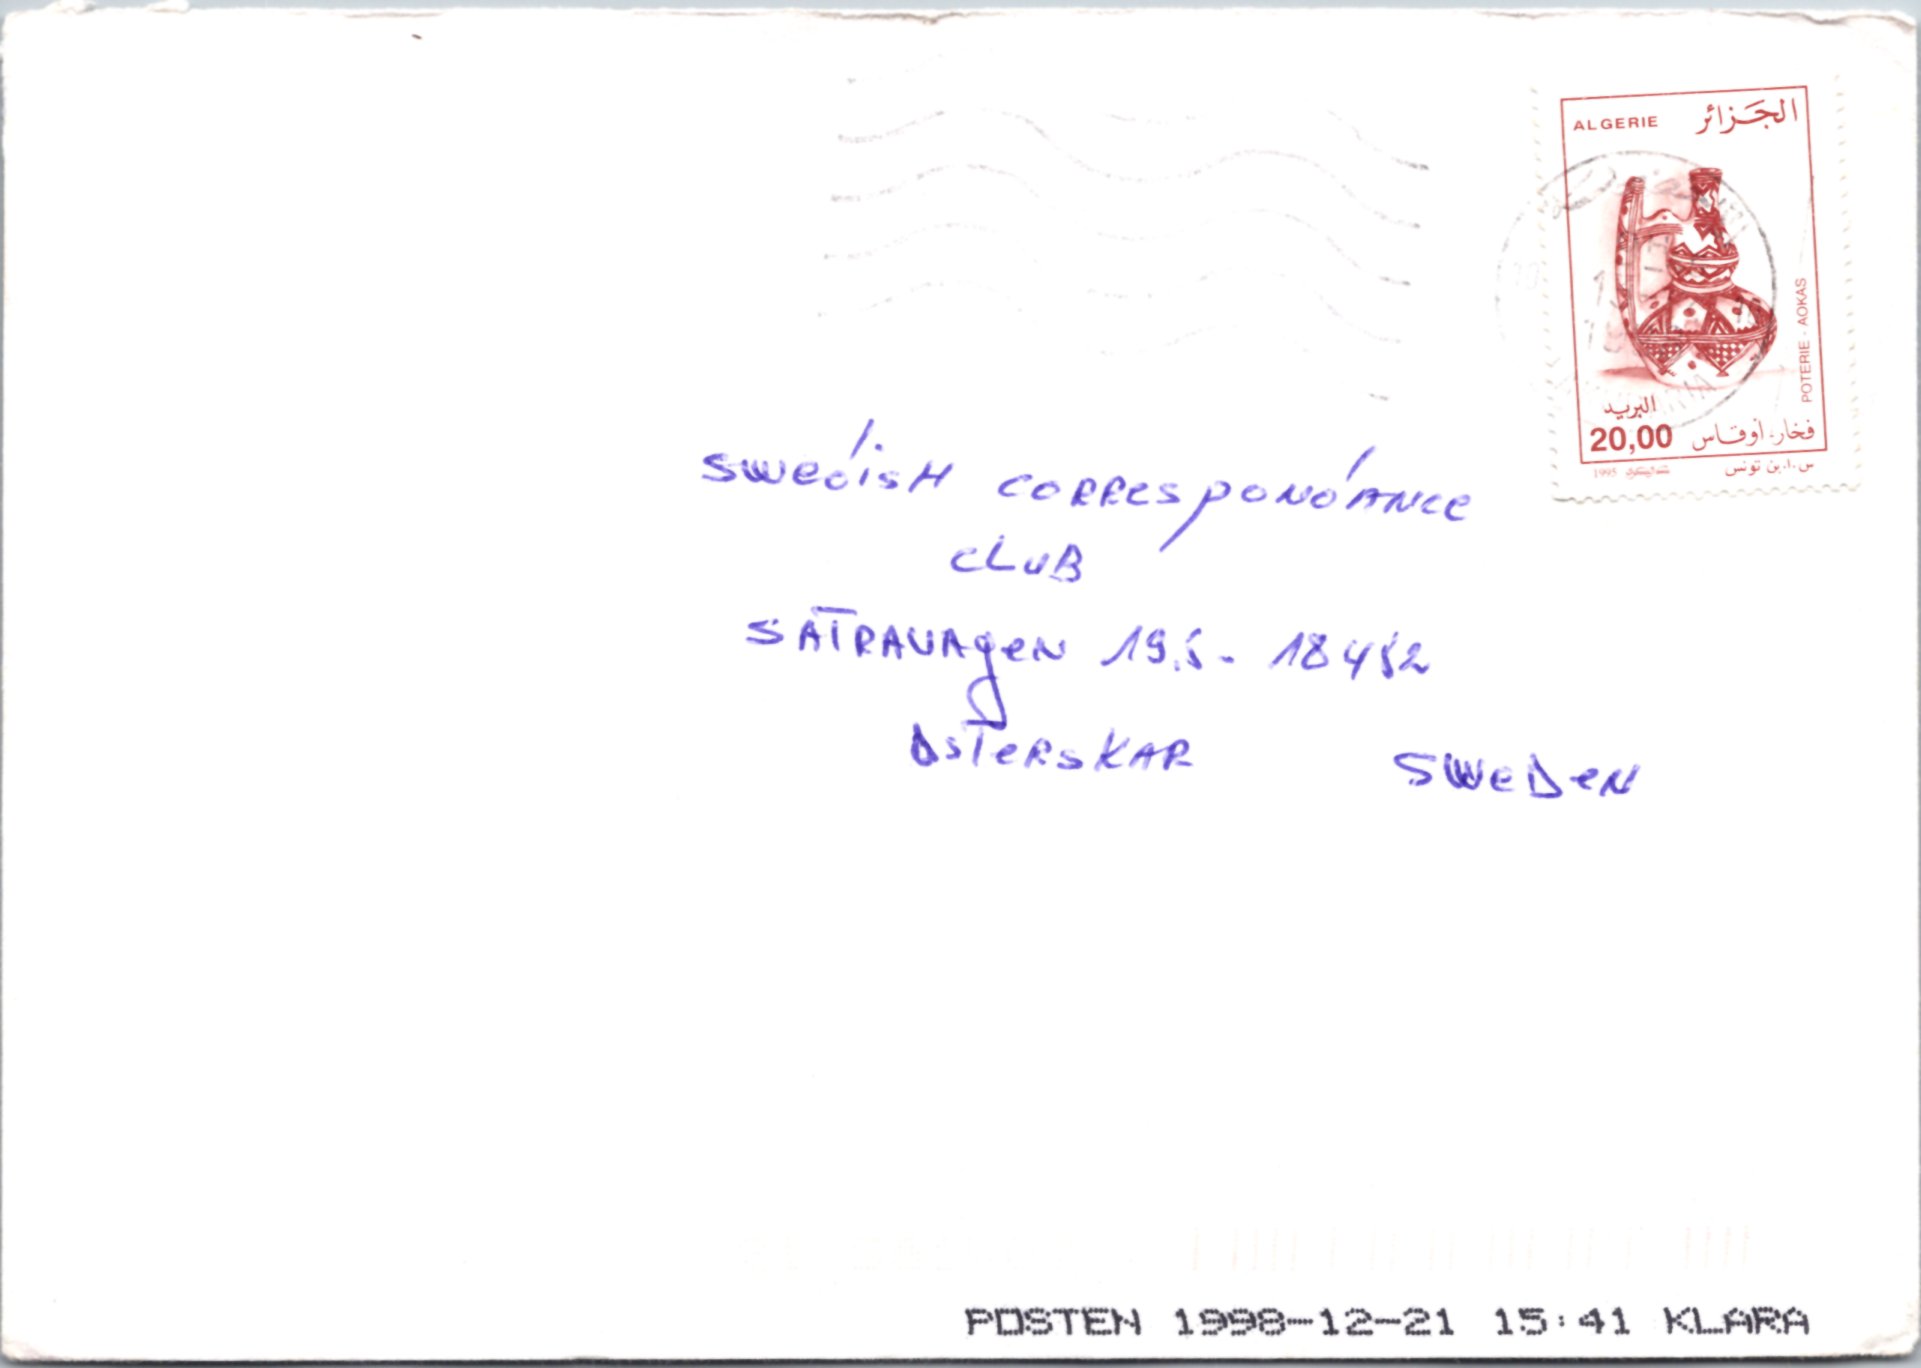 ALGERIE الجزائر
POTERIE - AOKAS
البريد
20,00 فخار، أوقاس
1995 س.ا. بن تونس
SWEDisH CORRESPONDANCE
CLUB
SATRAVAGEN 19.S - 18452
OSTERSKAR SWEDEN
POSTEN 1998-12-21 15:41 KLARA